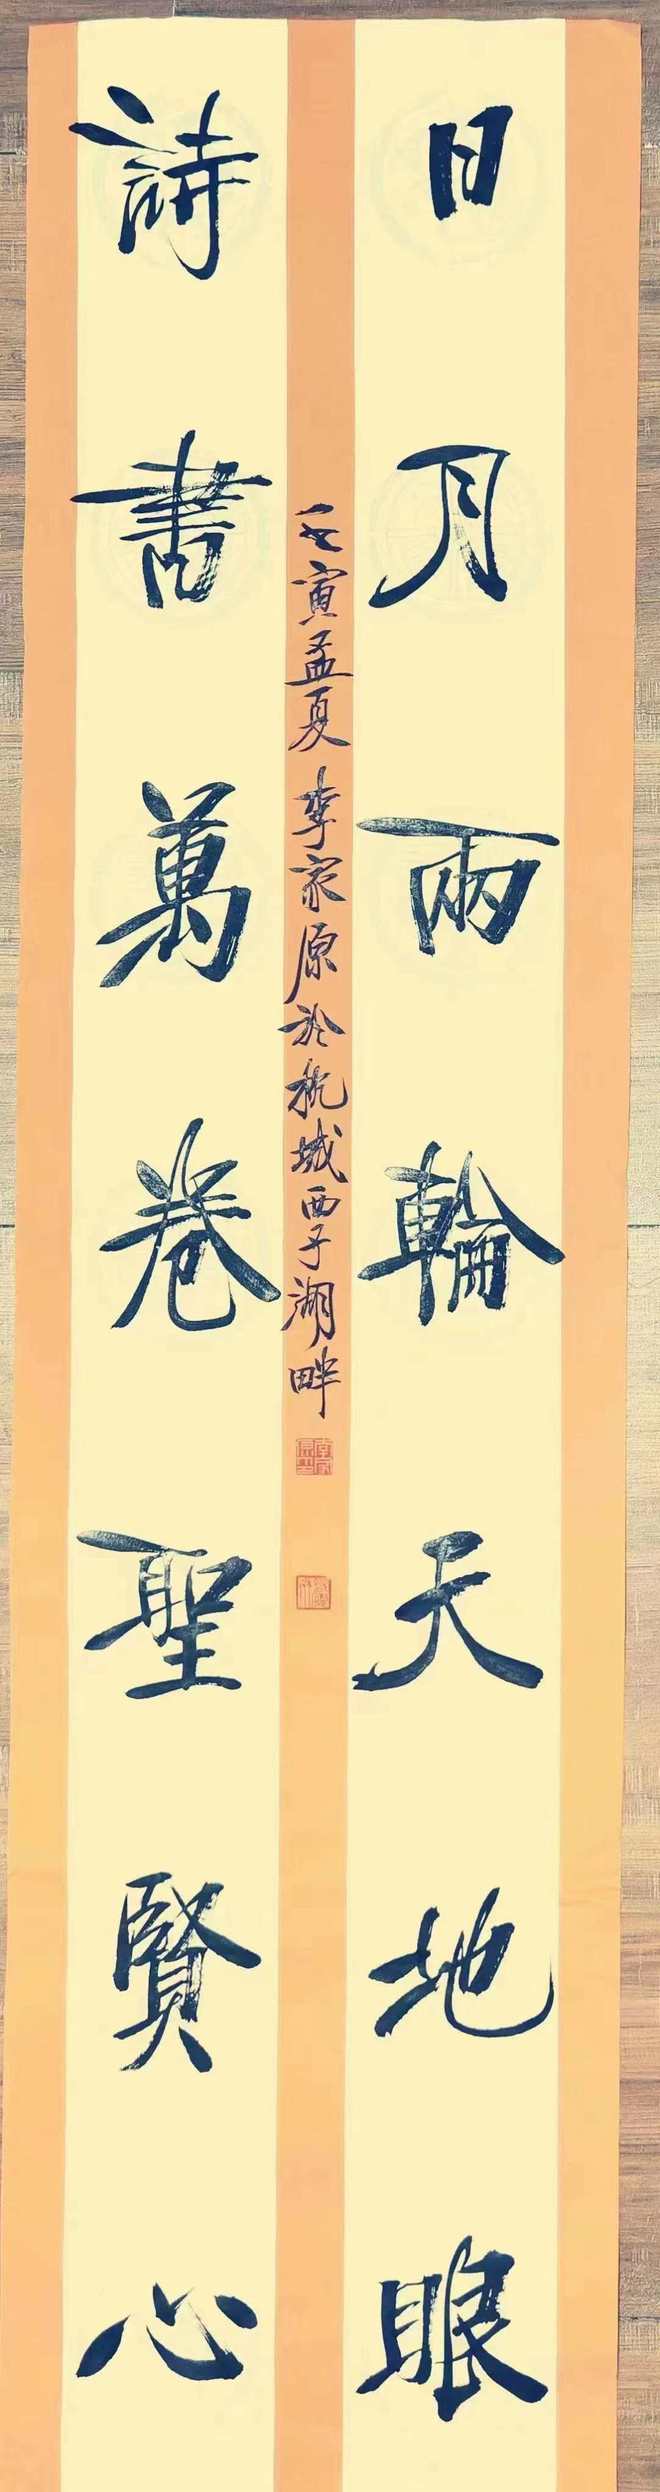 日月兩輪天地眼
詩書萬卷聖賢心
壬寅孟夏 李家原於杭城西子湖畔